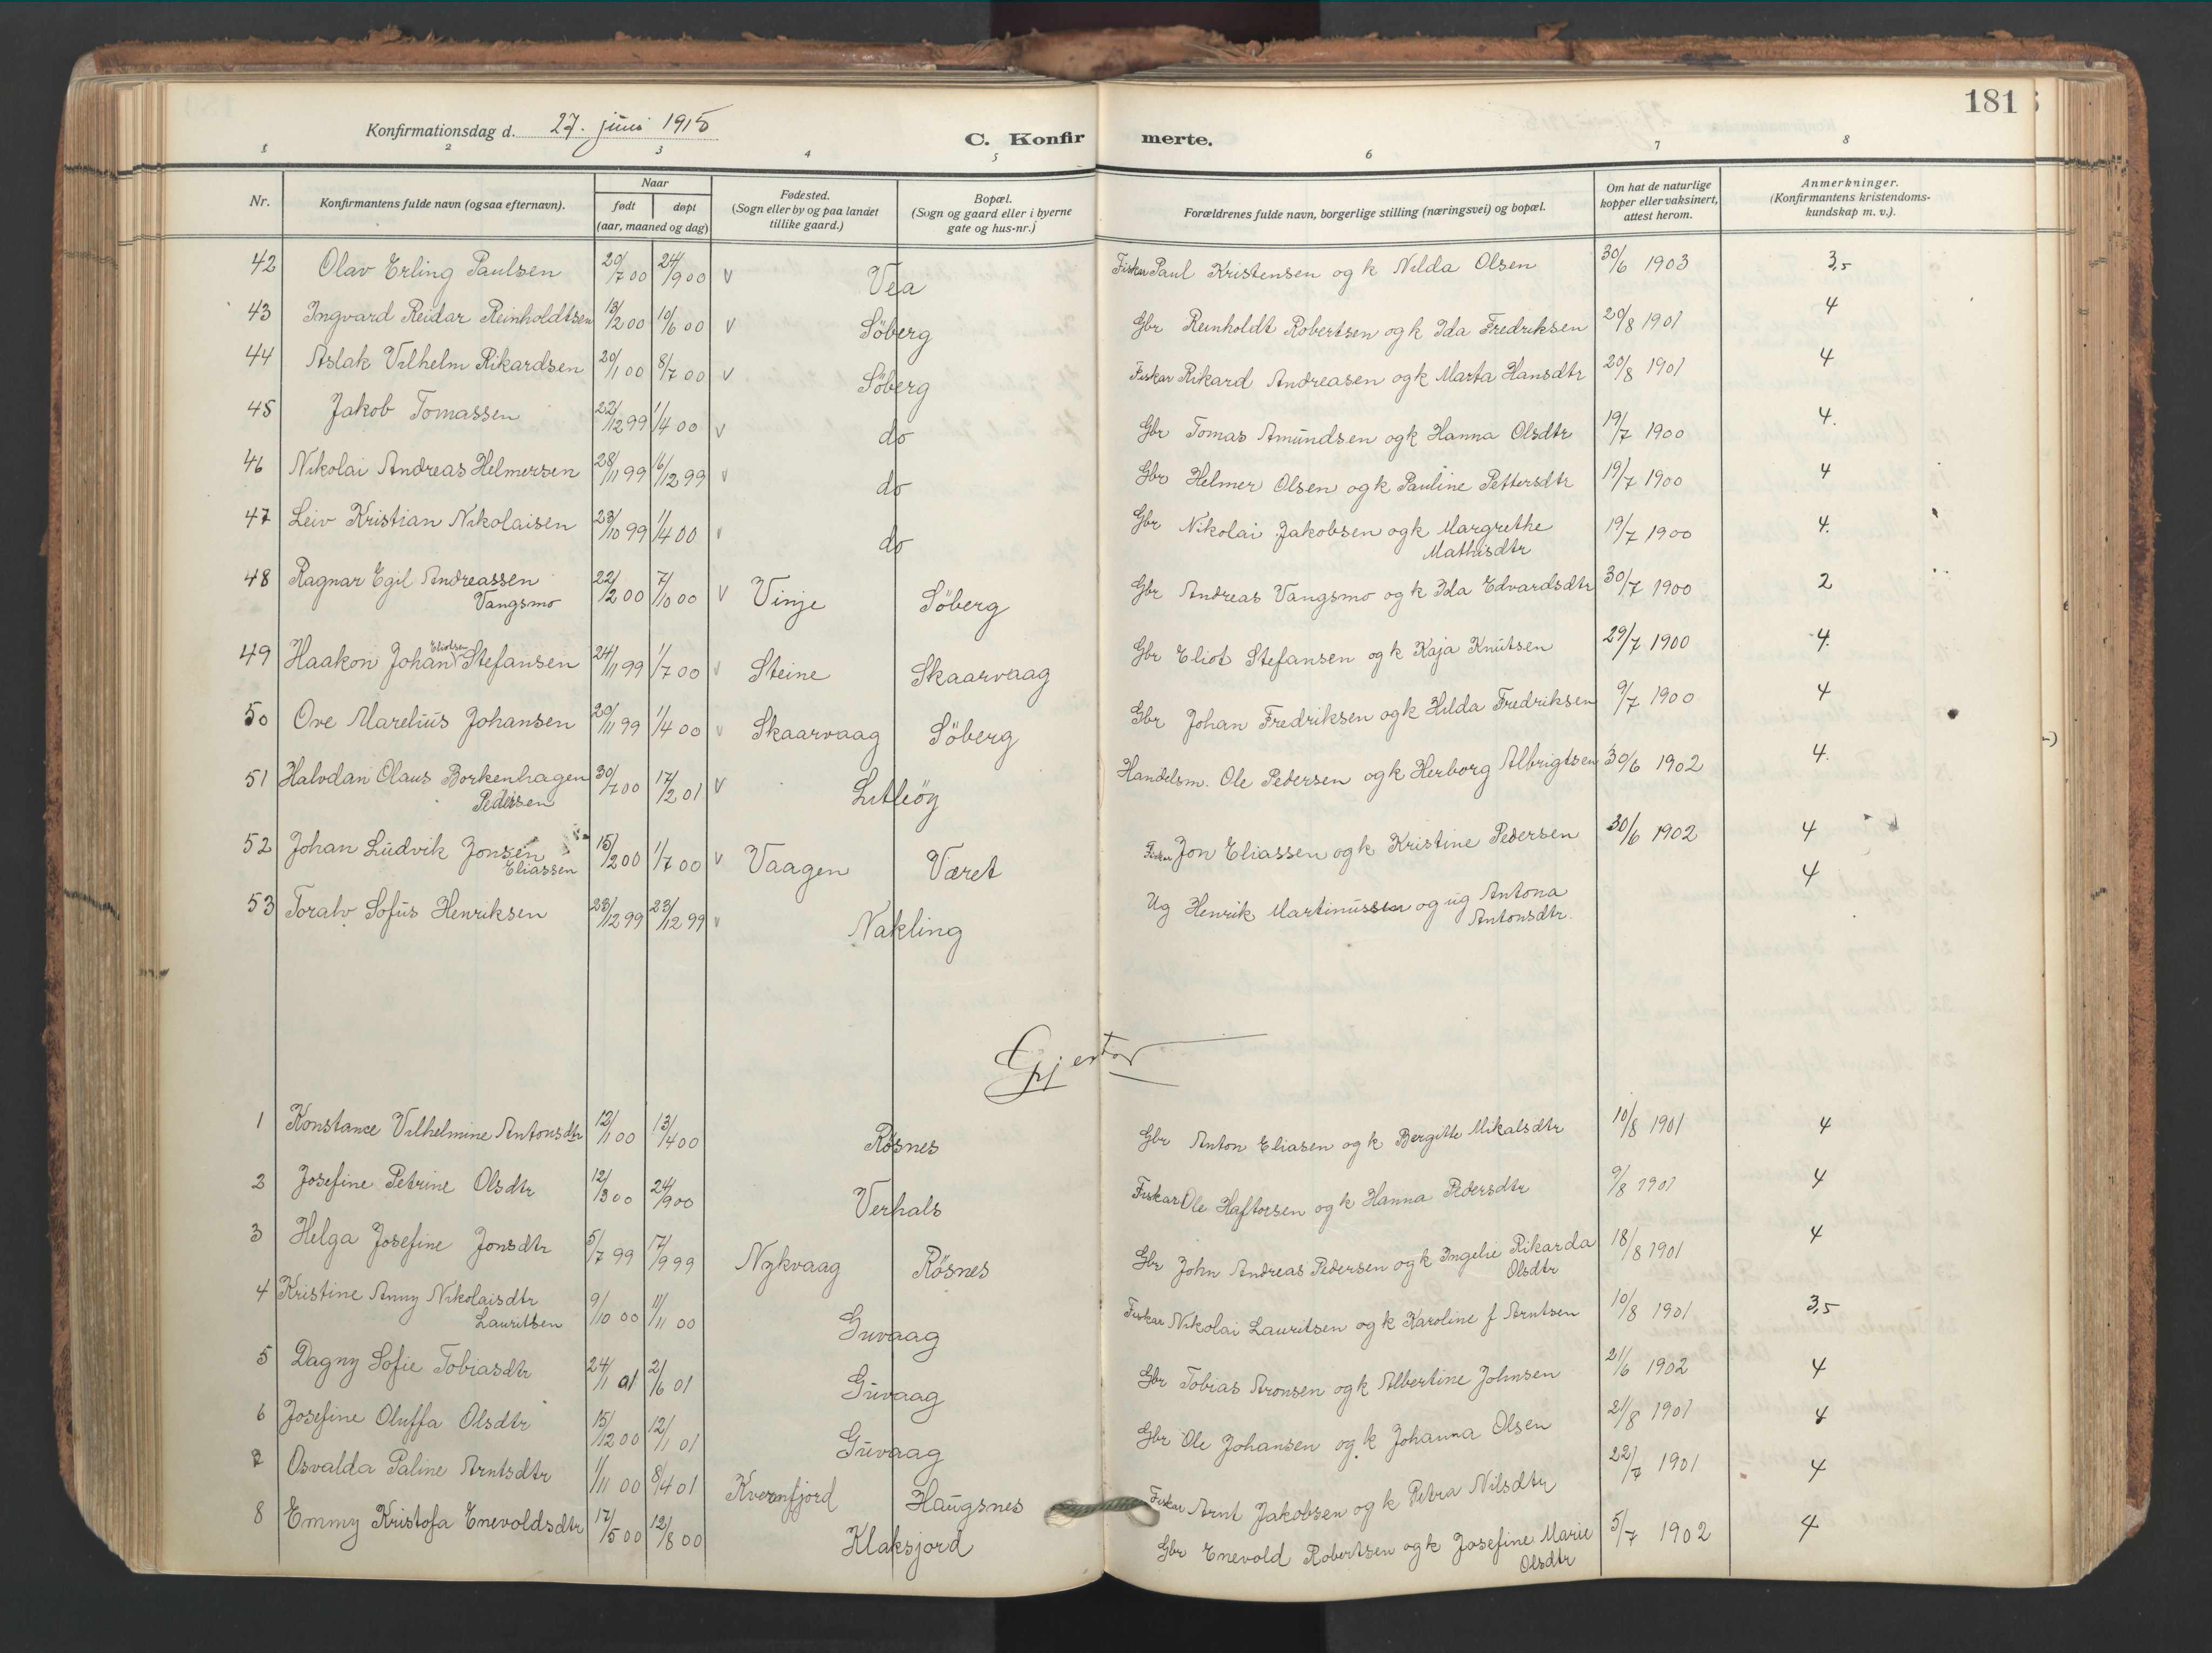 181
Konfirmationsdag d. 27. juni 1915
C. Konfirmerte.
1 2 3 4 5 6 7 8
Nr. Konfirmantens fulde navn (ogsaa efternavn). Naar født døpt (aar, maaned og dag) Fødested. (Sogn eller by og paa landet tillike gaard.) Bopæl. (Sogn og gaard eller i byerne gate og hus-nr.) Forældrenes fulde navn, borgerlige stilling (næringsvei) og bopæl. Om hat de naturlige kopper eller vaksinert, attest herom. Anmerkninger. (Konfirmantens kristendoms-kundskap m. v.).
42 Olav Erling Paulsen 20/7 00 24/9 00 v Vea Fisker Paul Kristensen og k Nilda Olsen 30/6 1903 3,5
43 Ingvard Reidar Reinholdtsen 13/2 00 10/6 00 v Söberg Gbr Reinholdt Robertsen og k Ida Fredriksen 20/8 1901 4
44 Aslak Vilhelm Rikardsen 20/1 00 8/7 00 v Söberg Fiskar Rikard Andreasen og k Marta Hansdtr 20/8 1901 4
45 Jakob Tomassen 22/12 99 1/4 00 v do Gbr Tomas Amundsen og k Hanna Olsdtr 19/7 1900 4.
46 Nikolai Andreas Helmersen 28/11 99 16/12 99 v do Gbr Helmer Olsen og k Pauline Pettersdtr 19/7 1900 4
47 Leiv Kristian Nikolaisen 23/10 99 1/4 00 v do Gbr Nikolai Jakobsen og k Margrethe
Mathisdtr 19/7 1900 4.
48 Ragnar Egil Andreassen
Vangsmo 22/2 00 7/10 00 v Vinje Söberg Gbr Andreas Vangsmo og k Ida Edvardsdtr 30/7 1900 2
49 Haakon Johan Eliotsen Stefansen 24/11 99 1/7 00 v Steine Skaarvaag Gbr Eliot Stefansen og k Kaja Knutsen 29/7 1900 4.
50 Ove Marelius Johansen 20/11 99 1/4 00 v Skaarvaag Söberg Gbr Johan Fredriksen og k Hilda Fredriksen 9/7 1900 4
51 Halvdan Olaus Borkenhagen
Pedersen 30/7 00 17/2 01 v Litleöy Handelsm. Ole Pedersen og k Herborg Albrigtsen 30/6 1902 4.
52 Johan Ludvik Jonsen
Eliassen 15/2 00 1/7 00 v Vaagen Været Fisker Jon Eliassen og k Kristine Pedersen 30/6 1902 4
53 Toralv Sofus Henriksen 23/12 99 23/12 99 v Nakling Ug Henrik Martinussen og ug Antona
Antonsdtr. 4
Gjentor
1 Konstance Vilhelmine Antonsdtr 12/1 00 13/4 00 Rösnes Gbr Anton Eliasen og k Bergitte Mikalsdtr 10/8 1901 4
2 Josefine Petrine Olsdtr 12/3 00 24/9 00 Verhals Fiskar Ole Haftorsen og k Hanna Pedersdtr 9/8 1901 4
3 Helga Josefine Jonsdtr 5/7 99 17/9 99 Nykvaag Rösnes Gbr John Andreas Pedersen og k Ingelie Rikarda
Olsdtr 18/8 1901 4
4 Kristine Anny Nikolaisdtr
Lauritsen 9/10 00 11/11 00 Guvaag Fiskar Nikolai Lauritsen og k Karoline f Arntsen 10/8 1901 3,5
5 Dagny Sofie Tobiasdtr 24/1 01 2/6 01 Guvaag Gbr Tobias Aronsen og k Albertine Johnsen 21/6 1902 4
6 Josefine Oluffa Olsdtr 15/12 00 12/1 01 Guvaag Gbr Ole Johansen og k Johanna Olsen 21/8 1901 4
7 Osvalda Paline Arntsdtr 1/11 00 8/4 01 Kvernfjord Haugsnes Fiskar Arnt Jakobsen og k Petra Nilsdtr 22/7 1901 4
8 Emmy Kristofa Enevoldsdtr 17/5 00 12/8 00 Klaksjord Gbr Enevold Robertsen og k Josefine Marie
Olsdtr 5/7 1902 4